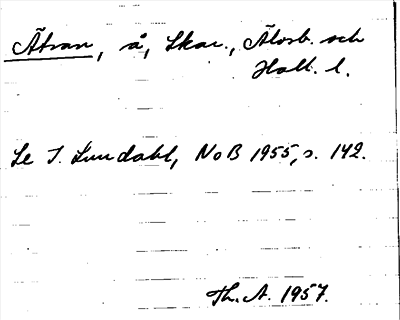 Ätran, å, Skar., Älvsb. och
Hall. l.
Se I. Lundahl, NoB 1955, s. 142.
Th. A. 1957.